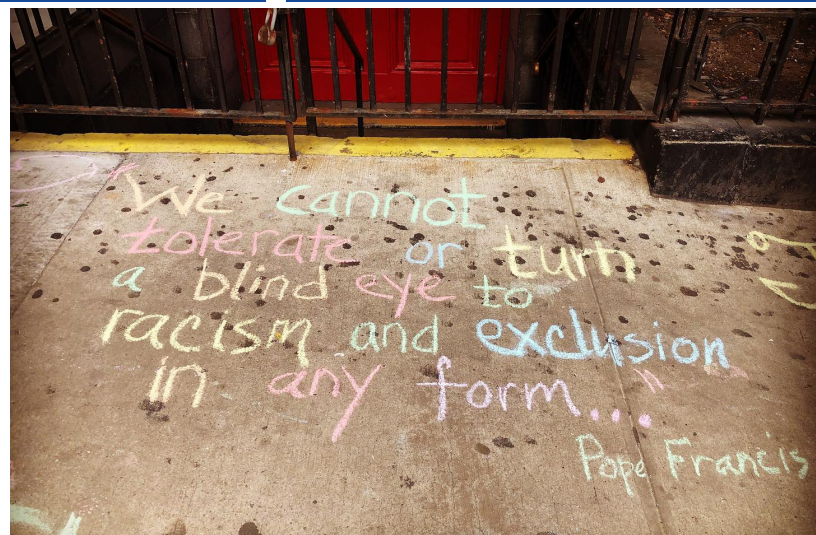 "We cannot
tolerate or turn
a blind eye to
racism and exclusion
in any form..."
Pope Francis